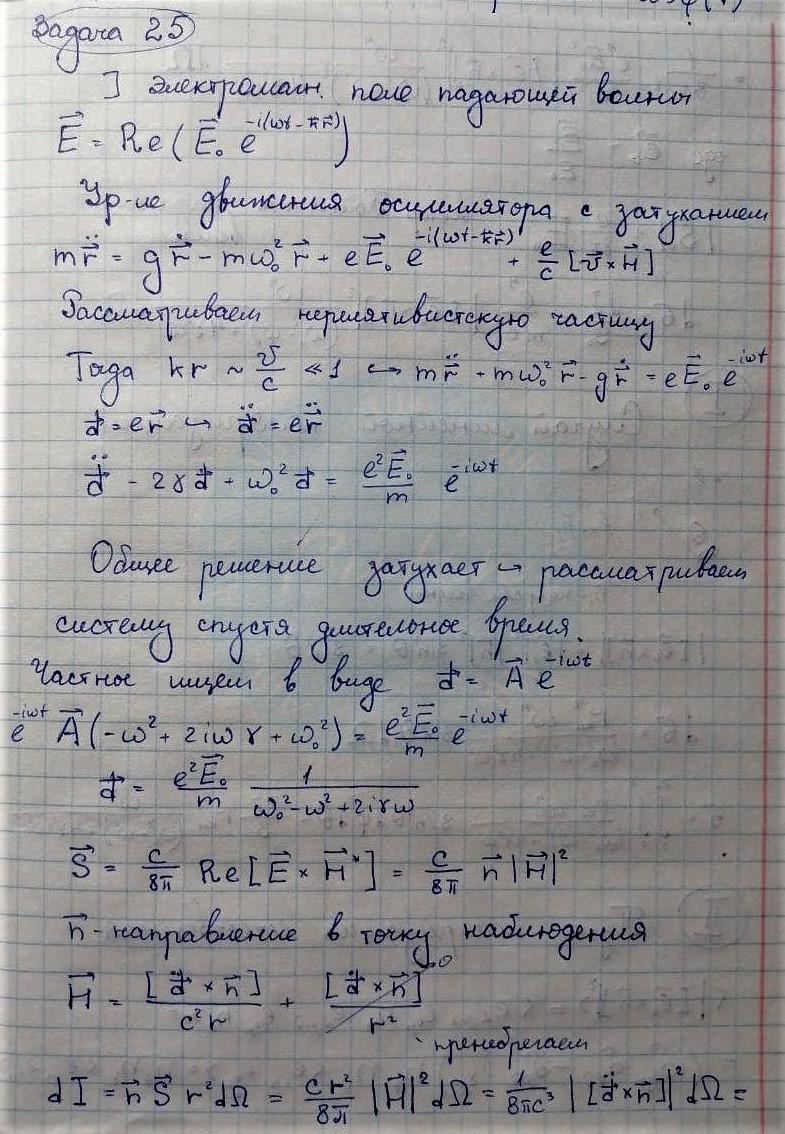 Задача 25
] Электромагн. поле падающей волны
E⃗ = Re(E⃗₀ e^{-i(ωt - k⃗r⃗)})
Ур-ие движения осциллятора с затуханием
m r⃗̈ = g r⃗̇ - mω₀² r⃗ + e E⃗₀ e^{-i(ωt - k⃗r⃗)} + e/c [v⃗ × H⃗]
Рассматриваем нерелятивистскую частицу
Тогда kr ~ v/c ≪ 1 ↪ m r⃗̈ + mω₀² r⃗ - g r⃗̇ = e E⃗₀ e^{-iωt}
d⃗ = e r⃗ ↪ d⃗̈ = e r⃗̈
d⃗̈ - 2γ d⃗ + ω₀² d⃗ = e² E⃗₀/m e^{-iωt}
Общее решение затухает ↪ рассматриваем
систему спустя длительное время.
Частное ищем в виде d⃗ = A⃗ e^{-iωt}
e^{-iωt} A⃗ (-ω² + 2iωγ + ω₀²) = e² E⃗₀/m e^{-iωt}
d⃗ = e² E⃗₀/m 1/(ω₀² - ω² + 2iγω)
S⃗ = c/8π Re[E⃗ × H⃗*] = c/8π n⃗ |H⃗|²
n⃗ - направление в точку наблюдения
H⃗ = [d⃗̈ × n⃗]/c²r + [d⃗̇ × n⃗]/r² → 0
пренебрегаем
dI = n⃗ S⃗ r² dΩ = cr²/8π |H⃗|² dΩ = 1/8πc³ |[d⃗̈ × n⃗]|² dΩ =